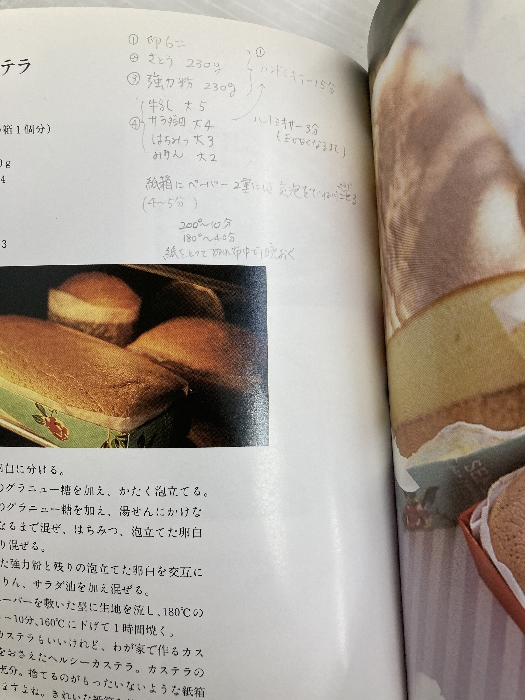 テラ
箱1個分)
① 卵6コ
② さとう 230g
③ 強力粉 230g
④ 牛乳 大5
サラダ油 大4
はちみつ 大3
みりん 大2
①
ハンドミキサー15分
ハンドミキサー3分
紙箱にペーパー2重にしく
(4~5分)
200°~10分
180°~40分
紙をとって
卵白に分ける。
のグラニュー糖を加え、かたく泡立てる。
のグラニュー糖を加え、湯せんにかけな
なるまで混ぜ、はちみつ、泡立てた卵白
り混ぜる。
た強力粉と残りの泡立てた卵白を交互に
りん、サラダ油を加え混ぜる。
ーパーを敷いた型に生地を流し、180℃の
~10分、160℃に下げて1時間焼く。
カステラもいいけれど、わが家で作るカス
をおさえたヘルシーカステラ。カステラの
充分。捨てるのがもったいないような紙箱